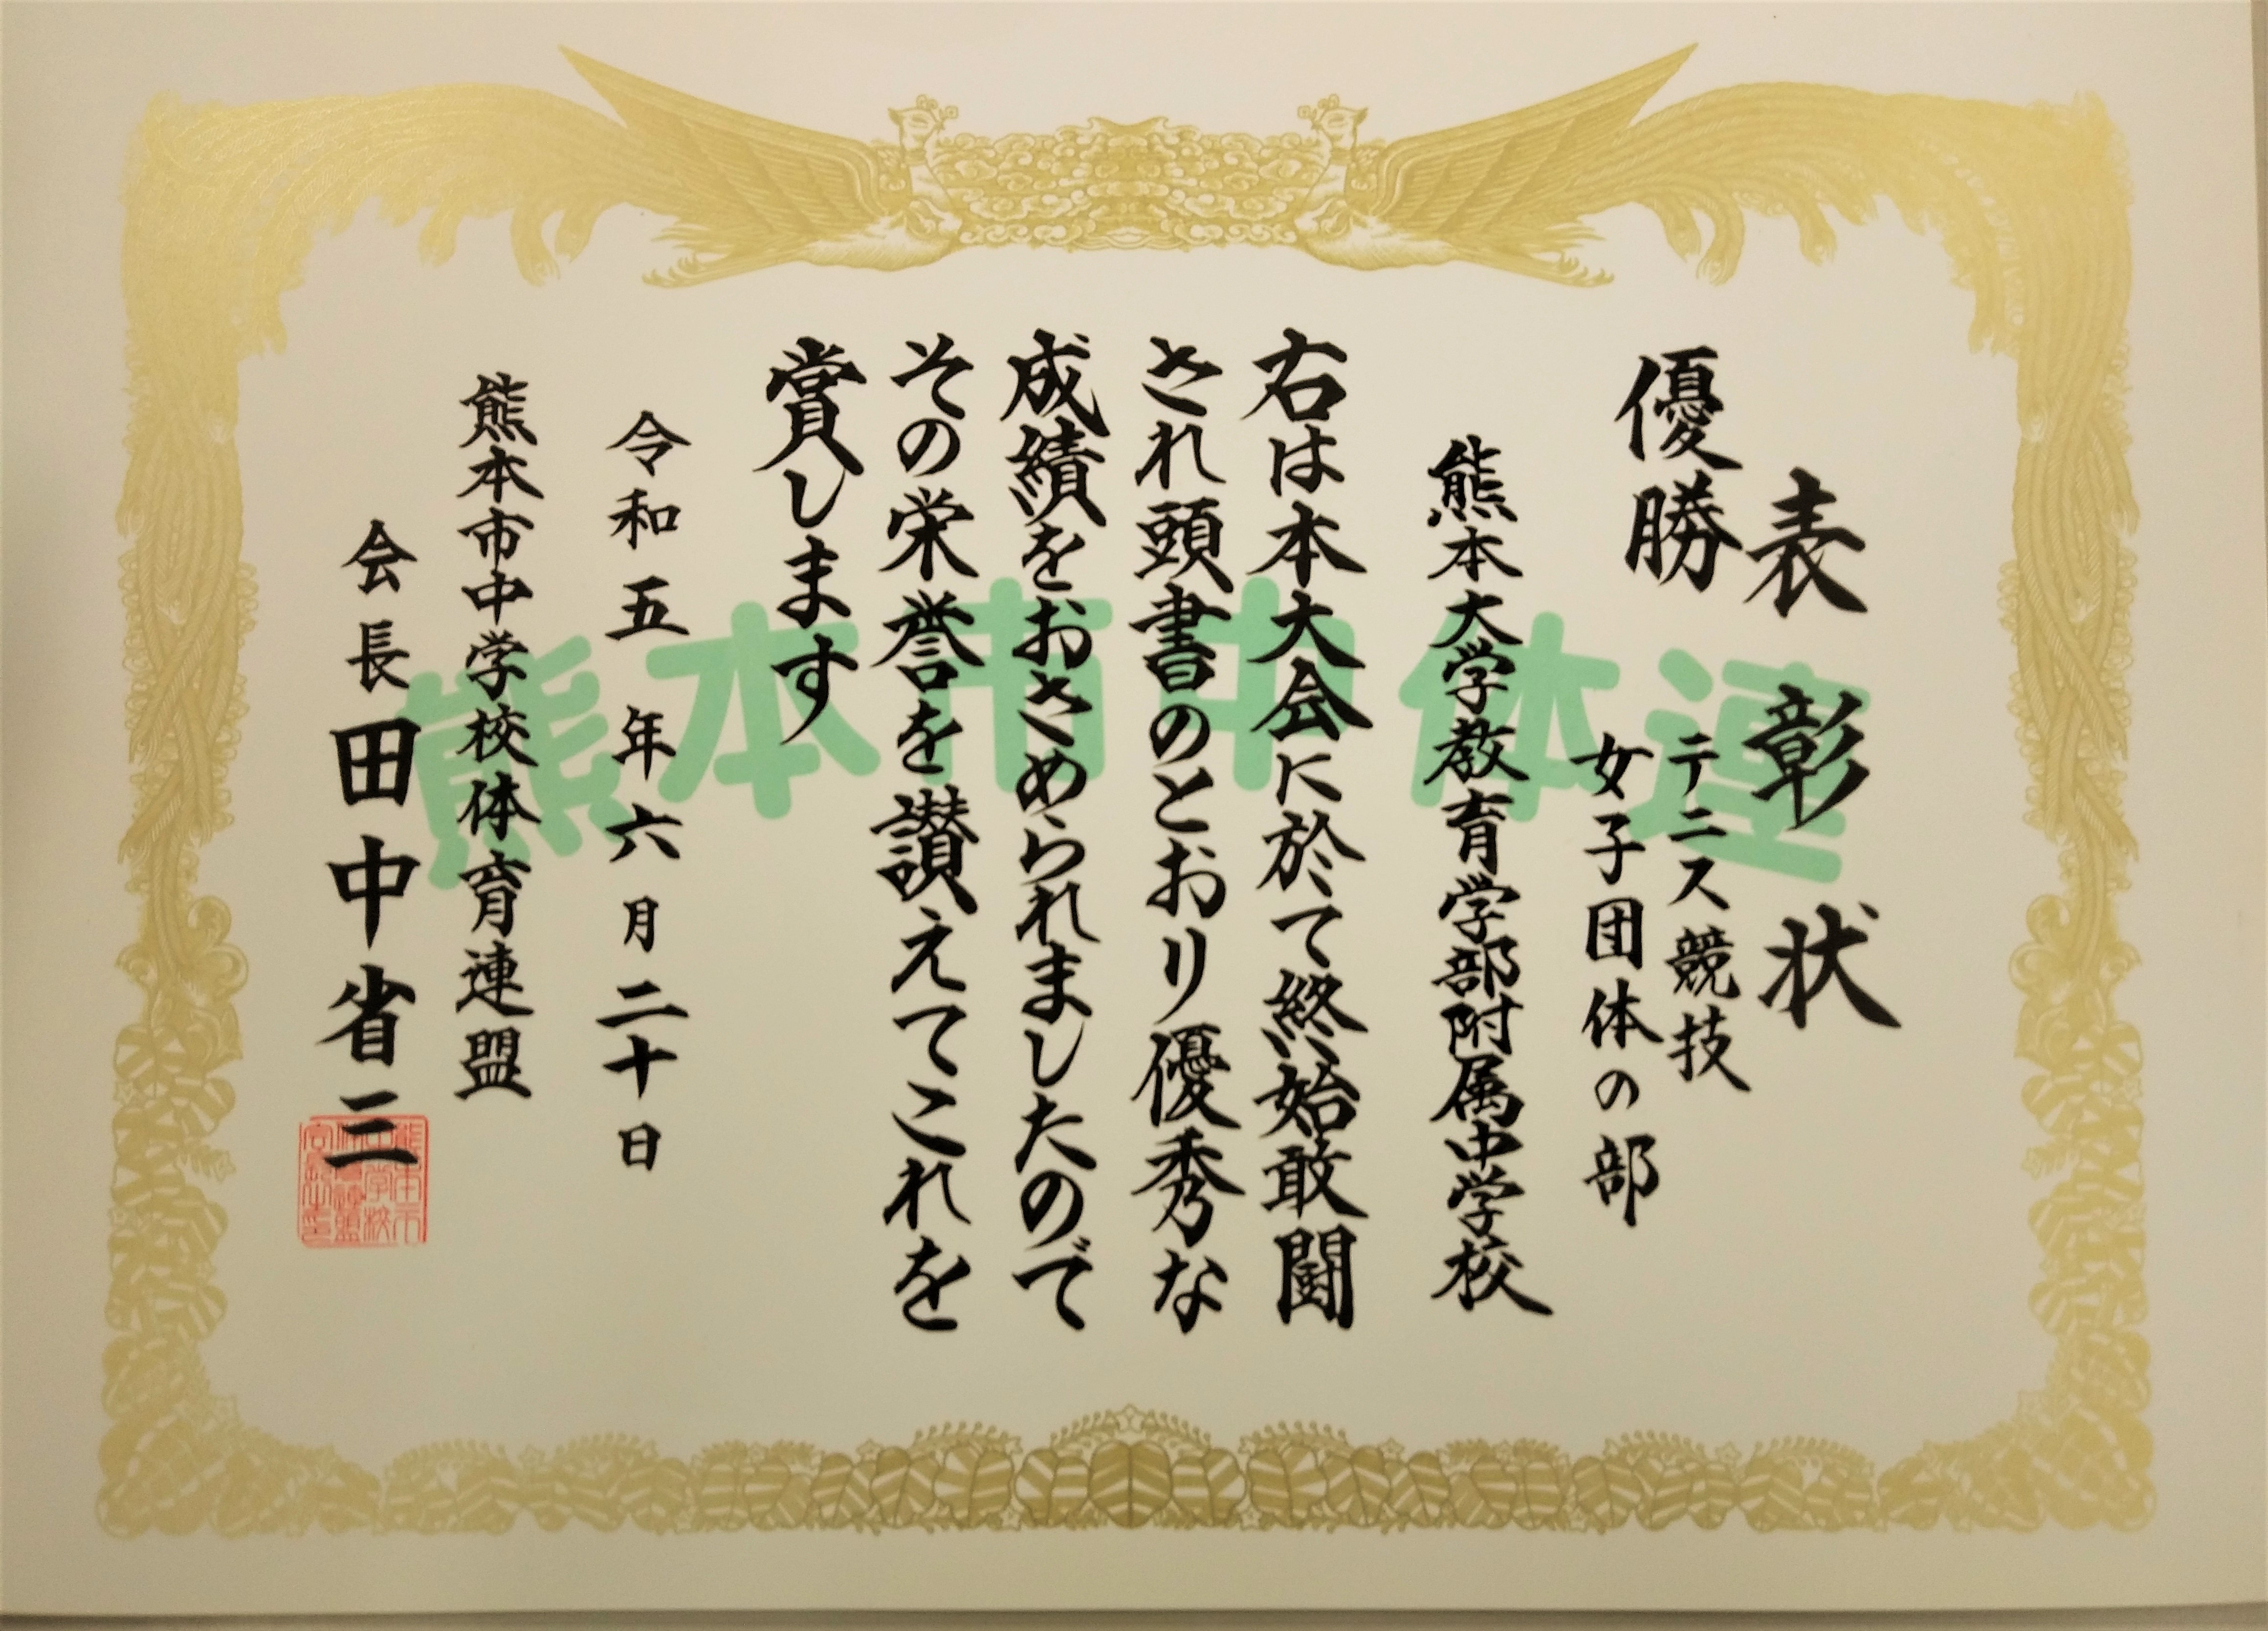 表彰状
優勝
テニス競技
女子団体の部
熊本大学教育学部附属中学校
右は本大会に於て終始敢闘
され頭書のとおり優秀な
成績をおさめられましたので
その栄誉を讃えてこれを
賞します
令和五年六月二十日
熊本市中学校体育連盟
会長田中省三
熊本市中体連